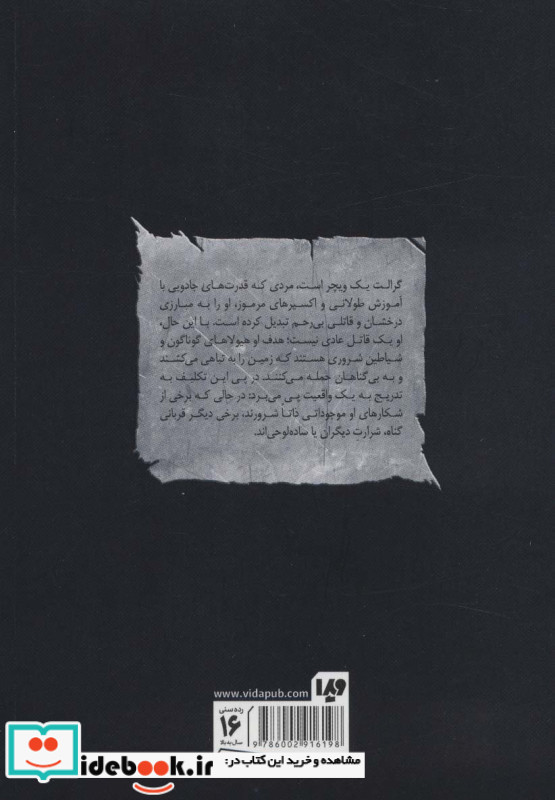 گرالت یک ویچر است، مردی که قدرت‌های جادویی با
آموزش طولانی و اکسیرهای مرموز، او را به مبارزی
درخشان و قاتلی بی‌رحم تبدیل کرده است. با این حال،
او یک قاتل عادی نیست؛ هدف او هیولاهای گوناگون و
شیاطین شروری هستند که زمین را به تباهی می‌کشند
و به بی‌گناهان حمله می‌کنند. در پی این تکلیف به
تدریج به یک واقعیت پی می‌برد: در حالی که برخی از
شکارهای او موجوداتی ذاتا شرورند، برخی دیگر قربانی
گناه، شرارت دیگران یا ساده‌لوحی‌اند.
www.vidapub.com
ویدا
رده سنی
۱۶
سال به بالا
9 786002 916198
idebook.ir
مشاهده و خرید این کتاب در: